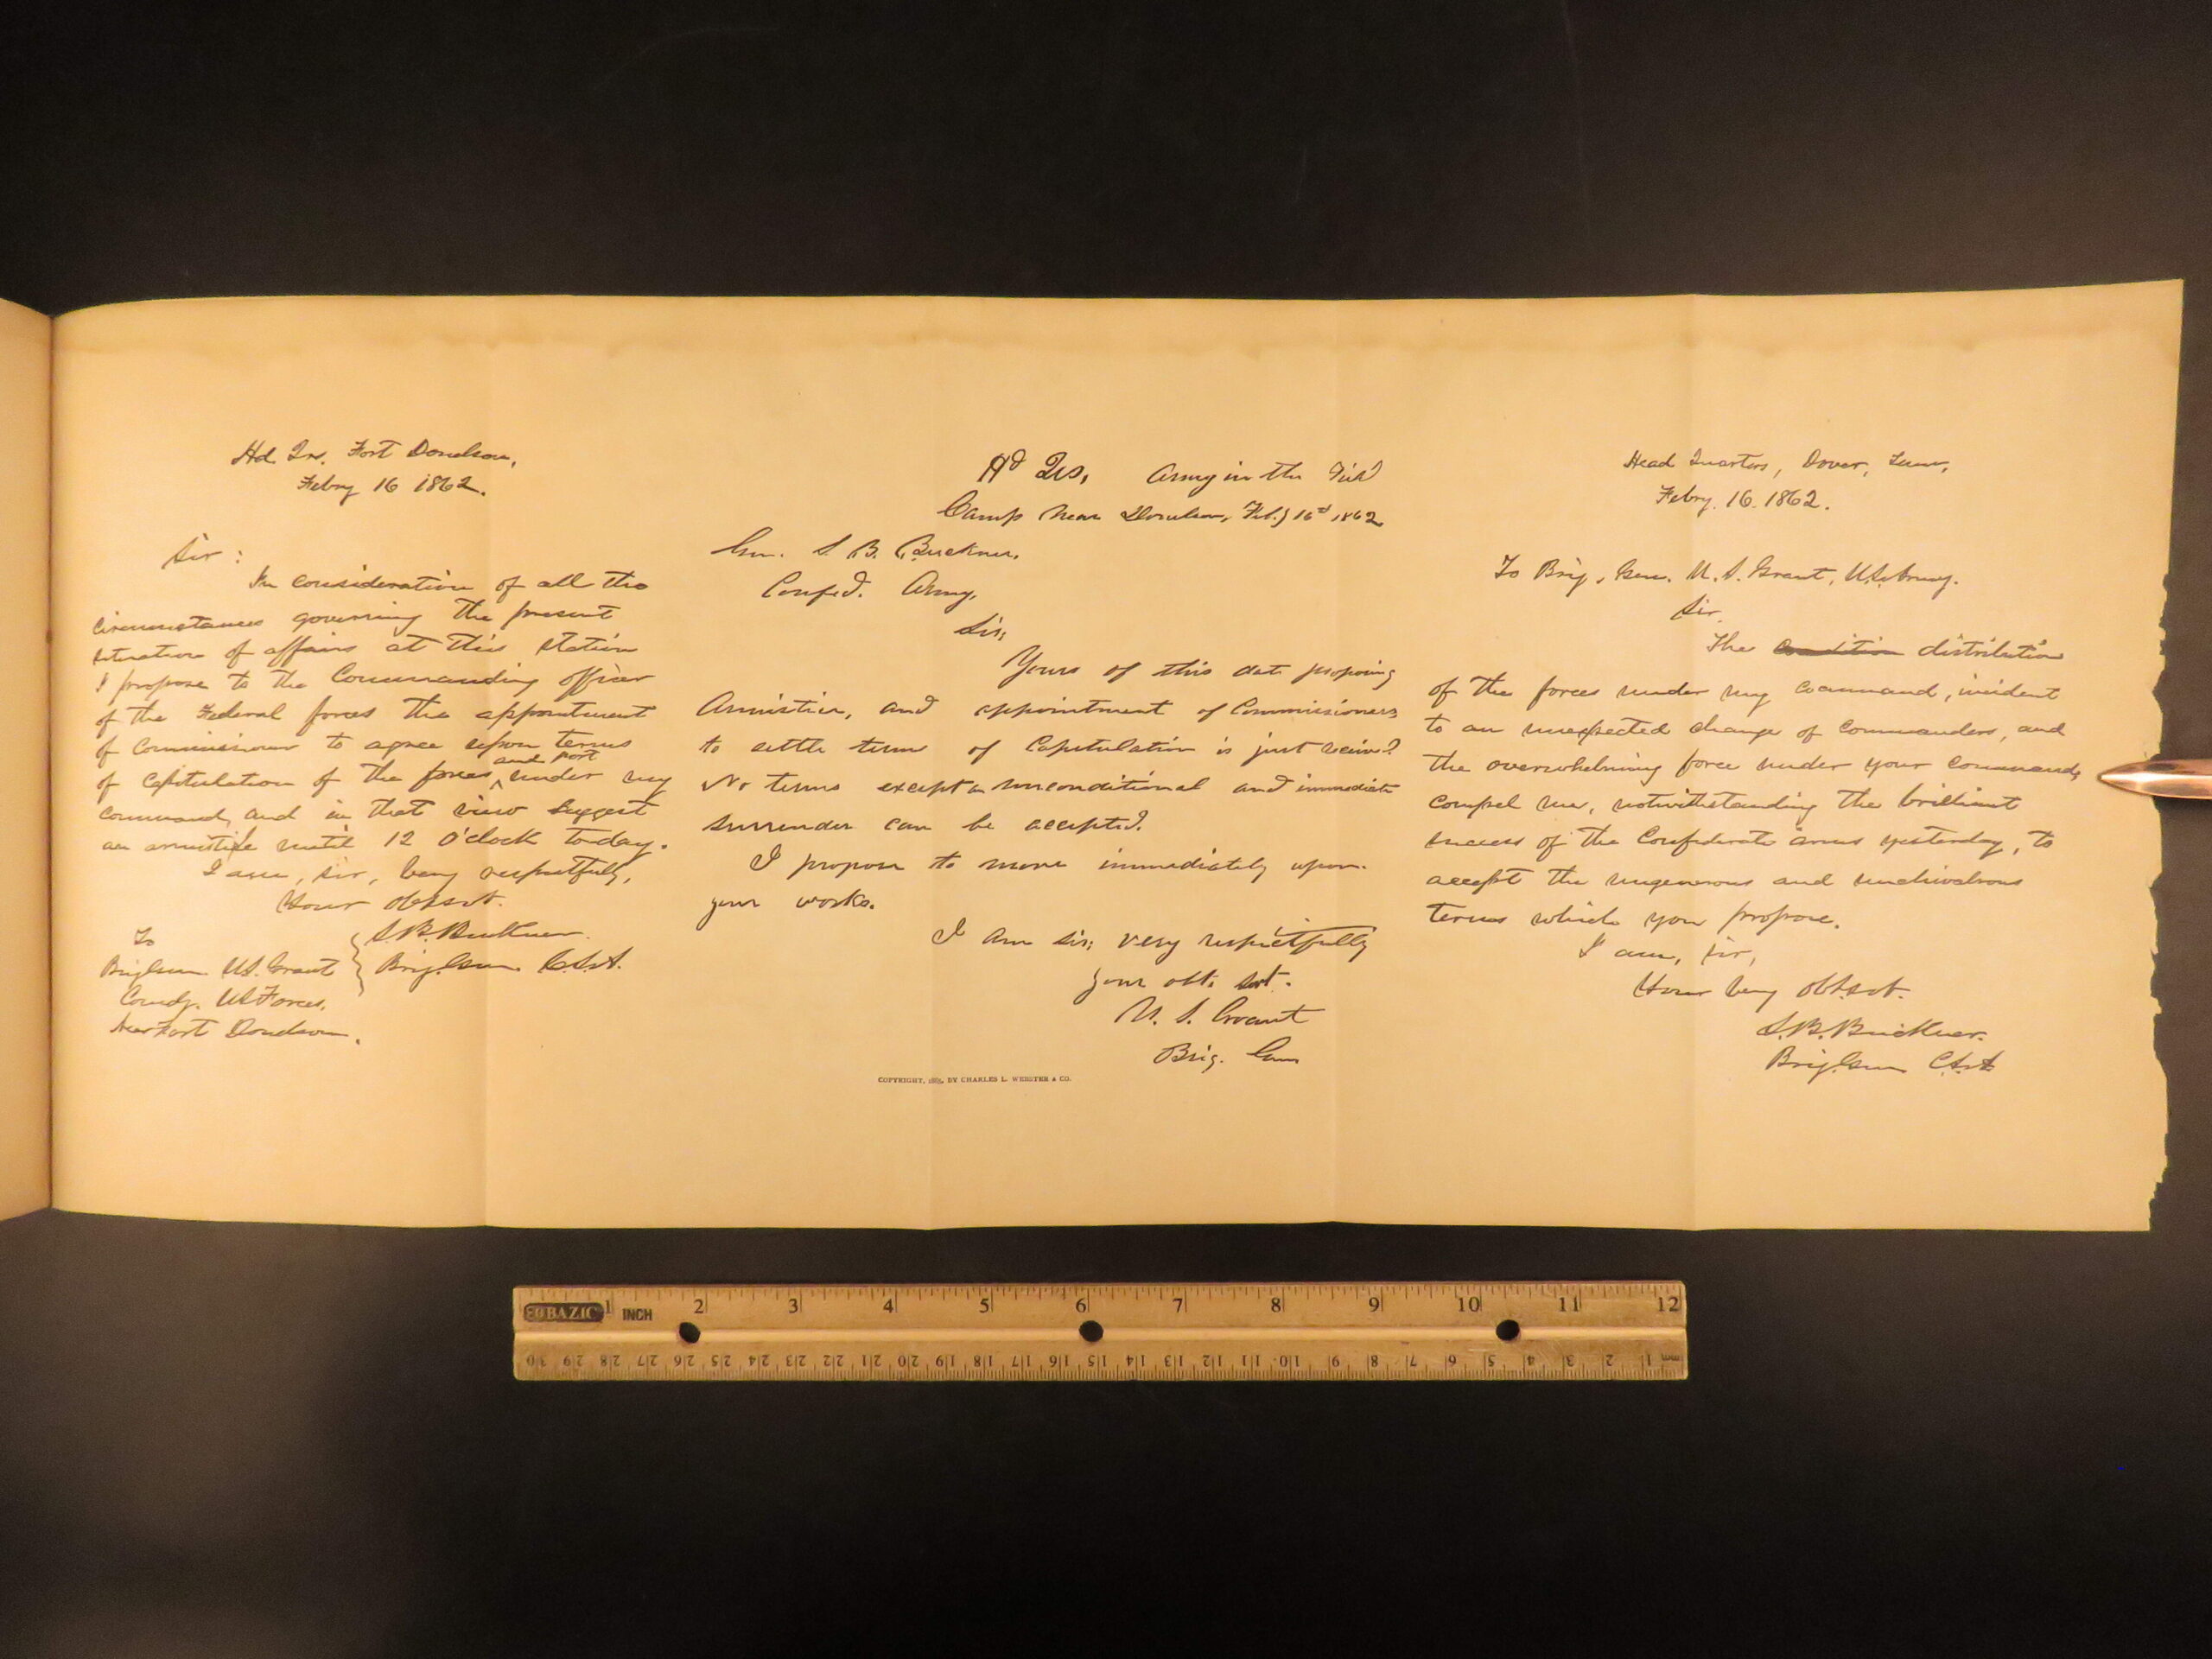 Hd. Qrs. Fort Donelson,
Febry 16 1862.
Sir :
In consideration of all the
circumstances governing the present
situation of affairs at this station
I propose to the Commanding officer
of the Federal forces the appointment
of Commissioners to agree upon terms
and Fort
of capitulation of the forces ^ under my
command, and in that view suggest
an armistice until 12 o'clock today.
I am, sir, very respectfully,
Your obt. svt.
S.B. Buckner.
Brig. Gen. C.S.A.
To
Brig Gen. U.S. Grant
Comdg. U.S. Forces,
Near Fort Donelson.
Hd Qrs, Army in the Field
Camp Near Donelson, Feb.y 16th 1862
Gen. S. B. Buckner,
Confed. Army,
Sir;
Yours of this date proposing
Armistice, and appointment of Commissioners
to settle terms of Capitulation is just received.
No terms except an unconditional and immediate
surrender can be accepted.
I propose to move immediately upon
your works.
I am sir; very respectfully
your obt. svt.
U. S. Grant
Brig. Gen
COPYRIGHT, 1885, BY CHARLES L. WEBSTER & CO.
Head Quarters, Dover, Tenn,
Febry. 16. 1862.
To Brig. Gen. U.S. Grant, U.S. Army.
Sir,
The condition distribution
of the forces under my command, incident
to an unexpected change of commanders, and
the overwhelming force under your command,
compel me, notwithstanding the brilliant
success of the Confederate arms yesterday, to
accept the ungenerous and unchivalrous
terms which you propose.
I am, sir,
Your very obt. svt.
S.B. Buckner.
Brig. Gen C.S.A
BAZIC INCH 1 2 3 4 5 6 7 8 9 10 11 12
30 29 28 27 26 25 24 23 22 21 20 19 18 17 16 15 14 13 12 11 10 9 8 7 6 5 4 3 2 1 mm